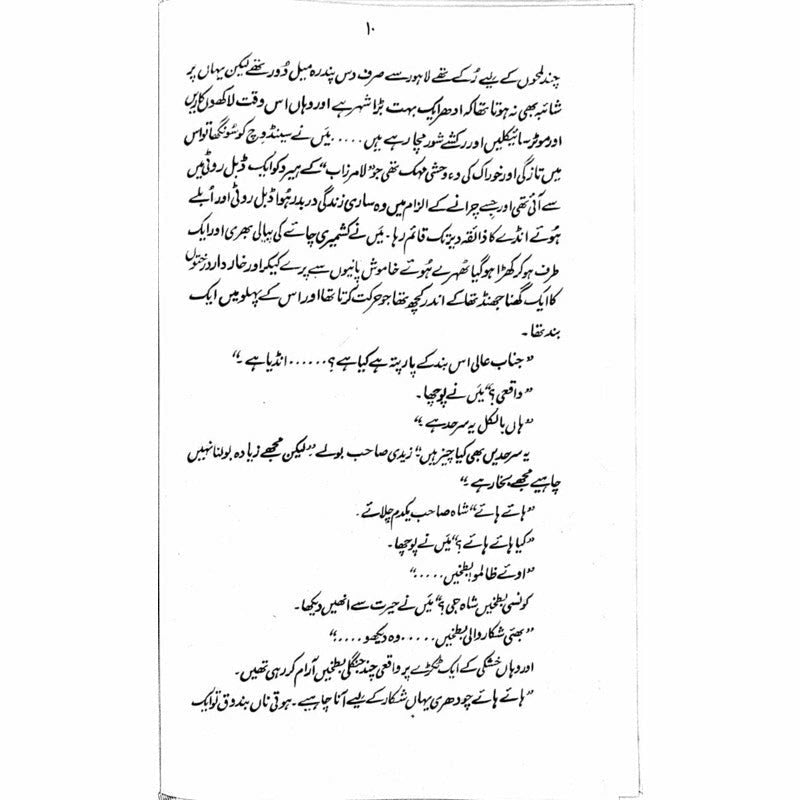 ۱۰
چند لمحوں کے لیے رُکے تھے لاہور سے صرف دس پندرہ میل دُور تھے لیکن یہاں پر
شائبہ بھی نہ ہوتا تھا کہ ادھر ایک بہت بڑا شہر ہے اور وہاں اس وقت لاکھوں کاریں
اور موٹر سائیکلیں اور رکشے شور مچا رہے ہیں ..... میَں نے سینڈوچ کو سُونگھا تو اس
میں تازگی اور خوراک کی وہ وحشی مہک تھی جو "لامرزاب" کے ہیرو کو ایک ڈبل روٹی میں
سے آئی تھی اور جسے چرانے کے الزام میں وہ ساری زندگی دربدر ہُوا ڈبل روٹی اور اُبلے
ہوئے انڈے کا ذائقہ دیر تک قائم رہا۔ میَں نے کشمیری چائے کی پیالی بھری اور ایک
طرف ہو کر کھڑا ہو گیا ٹھہرے ہُوئے خاموش پانیوں سے پرے کیکر اور خاردار درختوں
کا ایک گھنا جھنڈ تھا کے اندر کچھ تھا جو حرکت کرتا تھا اور اس کے پہلو میں ایک
بند تھا۔
"جناب عالی اس بند کے پار پتہ ہے کیا ہے ؟ ...... انڈیا ہے ۔"
"واقعی ؟" میَں نے پوچھا۔
"ہاں بالکل یہ سرحد ہے ۔"
یہ سرحدیں بھی کیا چیز ہیں" زیدی صاحب بولے "لیکن مجھے زیادہ بولنا نہیں
چاہیے مجھے بخار ہے ۔"
"ہائے ہائے" شاہ صاحب یکدم چلائے۔
"کیا ہائے ہائے ؟" میَں نے پوچھا۔
"اوئے ظالمو بطخیں ....."
کونسی بطخیں شاہ جی ؟" میَں نے حیرت سے انھیں دیکھا۔
"بھئی شکار والی بطخیں ..... وہ دیکھو ....."
اور وہاں خشکی کے ایک ٹکڑے پر واقعی چند جنگلی بطخیں آرام کر رہی تھیں۔
"ہائے ہائے چودھری یہاں شکار کے لیے آنا چاہیے۔ ہوتی ناں بندوق تو ایک